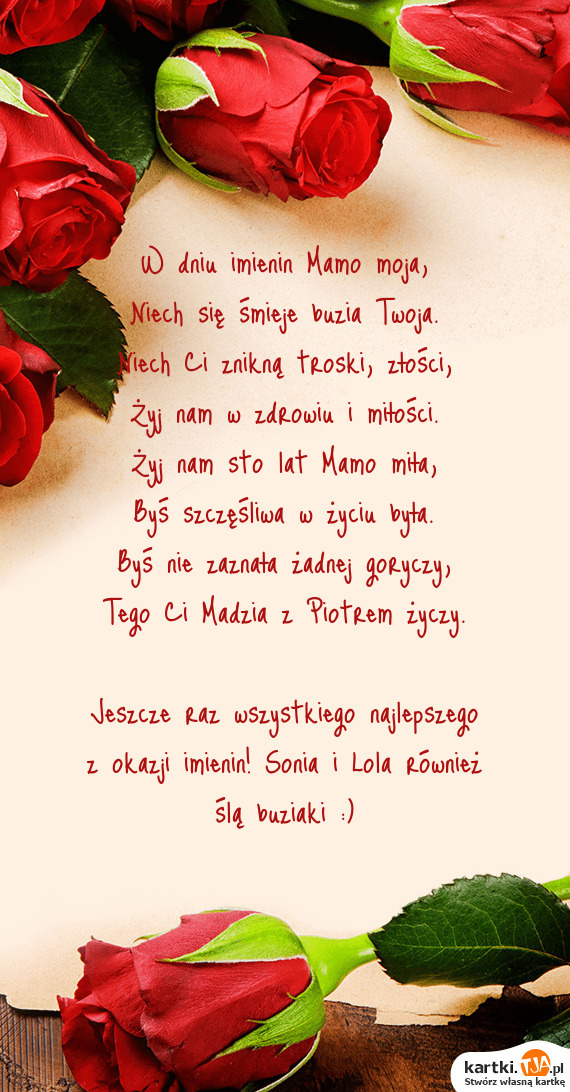 W dniu imienin Mamo moja,
Niech się śmieje buzia Twoja.
Niech Ci znikną troski, złości,
Żyj nam w zdrowiu i miłości.
Żyj nam sto lat Mamo miła,
Byś szczęśliwa w życiu była.
Byś nie zaznała żadnej goryczy,
Tego Ci Madzia z Piotrem życzy.
Jeszcze raz wszystkiego najlepszego
z okazji imienin! Sonia i Lola również
ślą buziaki :)
kartki.TJA.pl
Stwórz własną kartkę